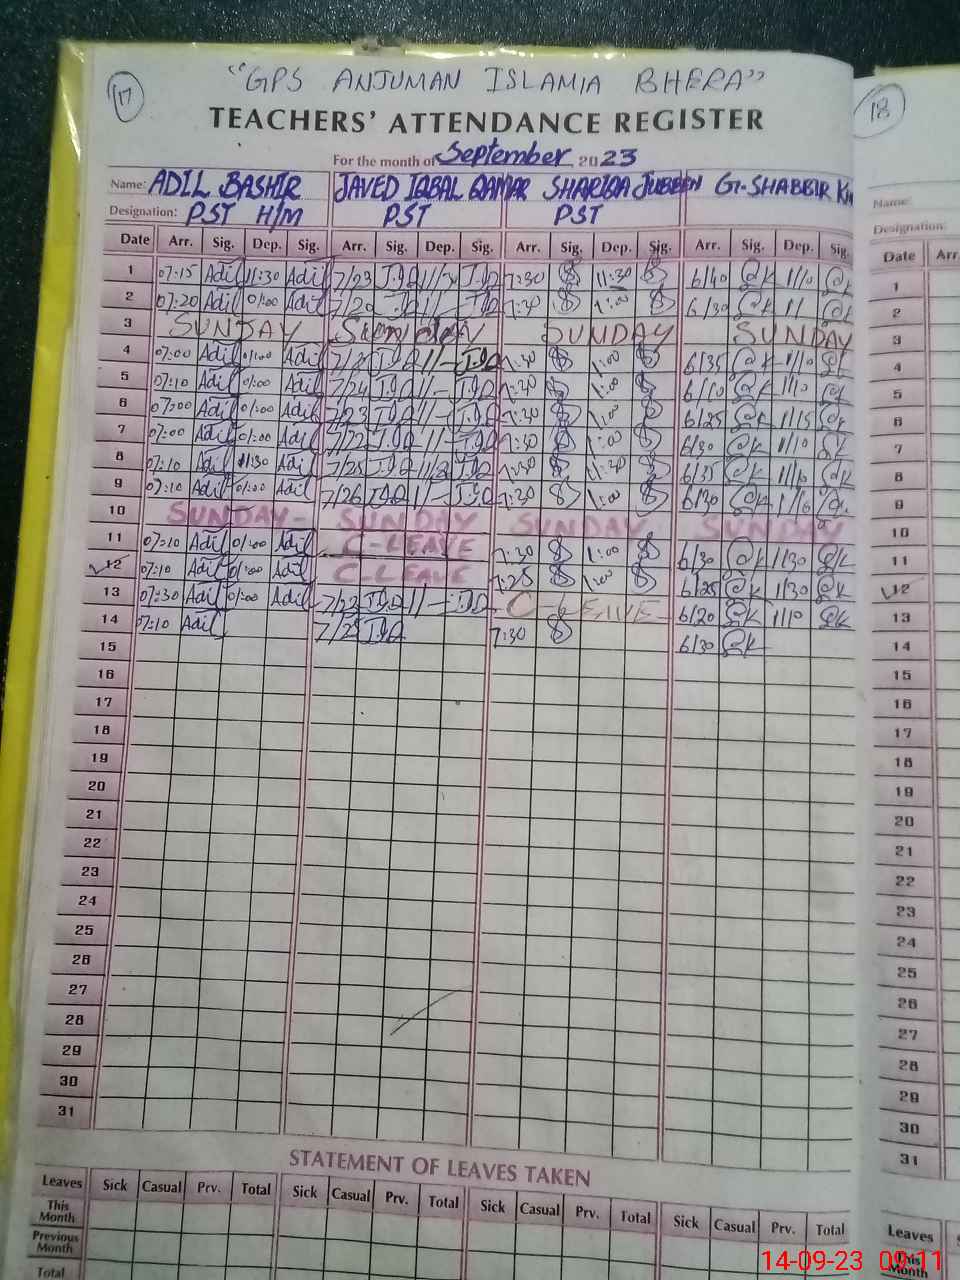 17
"GPS ANJUMAN ISLAMIA BHERA"
TEACHERS' ATTENDANCE REGISTER
18
For the month of September 2023
Name: ADIL BASHIR JAVED IQBAL QAMAR SHARIQA JUBEEN G. SHABBIR
Designation: PST H/M PST PST
Name:
Designation:
Date Arr. Sig. Dep. Sig. Arr. Sig. Dep. Sig. Arr. Sig. Dep. Sig. Arr. Sig. Dep. Sig. Date Arr.
1 07:15 Adil 11:30 Adil 7/23 7:30 11:30 6/40 11/10 1
2 07:20 Adil 01:00 Adil 7/20 7:30 1:00 6/30 2
3 SUNDAY SUNDAY SUNDAY SUNDAY 3
4 07:00 Adil 01:00 Adil 7:30 1:00 6/35 1/10 4
5 07:10 Adil 01:00 Adil 7/24 7:30 1:00 6/10 1/10 5
6 07:00 Adil 01:00 Adil 7/23 7:30 1:00 6/25 1/15 6
7 07:00 Adil 01:00 Adil 7/22 7:30 1:00 6/30 1/10 7
8 07:10 Adil 11:30 Adil 7/25 7:30 11:30 6/35 11/10 8
9 07:10 Adil 01:00 Adil 7/26 7:30 1:00 6/30 9
10 SUNDAY- SUNDAY SUNDAY SUNDAY 10
11 07:10 Adil 01:00 Adil C-LEAVE 7:30 1:00 6/30 1/30 11
12 07:10 Adil 01:00 Adil C-LEAVE 7:25 1:00 6/25 1/30 12
13 07:30 Adil 01:00 Adil 7/23 C-LEAVE 6/20 1/10 13
14 07:10 Adil 7/25 7:30 6/30 14
15 15
16 16
17 17
18 18
19 19
20 20
21 21
22 22
23 23
24 24
25 25
26 26
27 27
28 28
29 29
30 30
31 31
STATEMENT OF LEAVES TAKEN
Leaves Sick Casual Prv. Total Sick Casual Prv. Total Sick Casual Prv. Total Sick Casual Prv. Total Leaves
This Month
Previous Month
Total
This Month
14-09-23 09:11